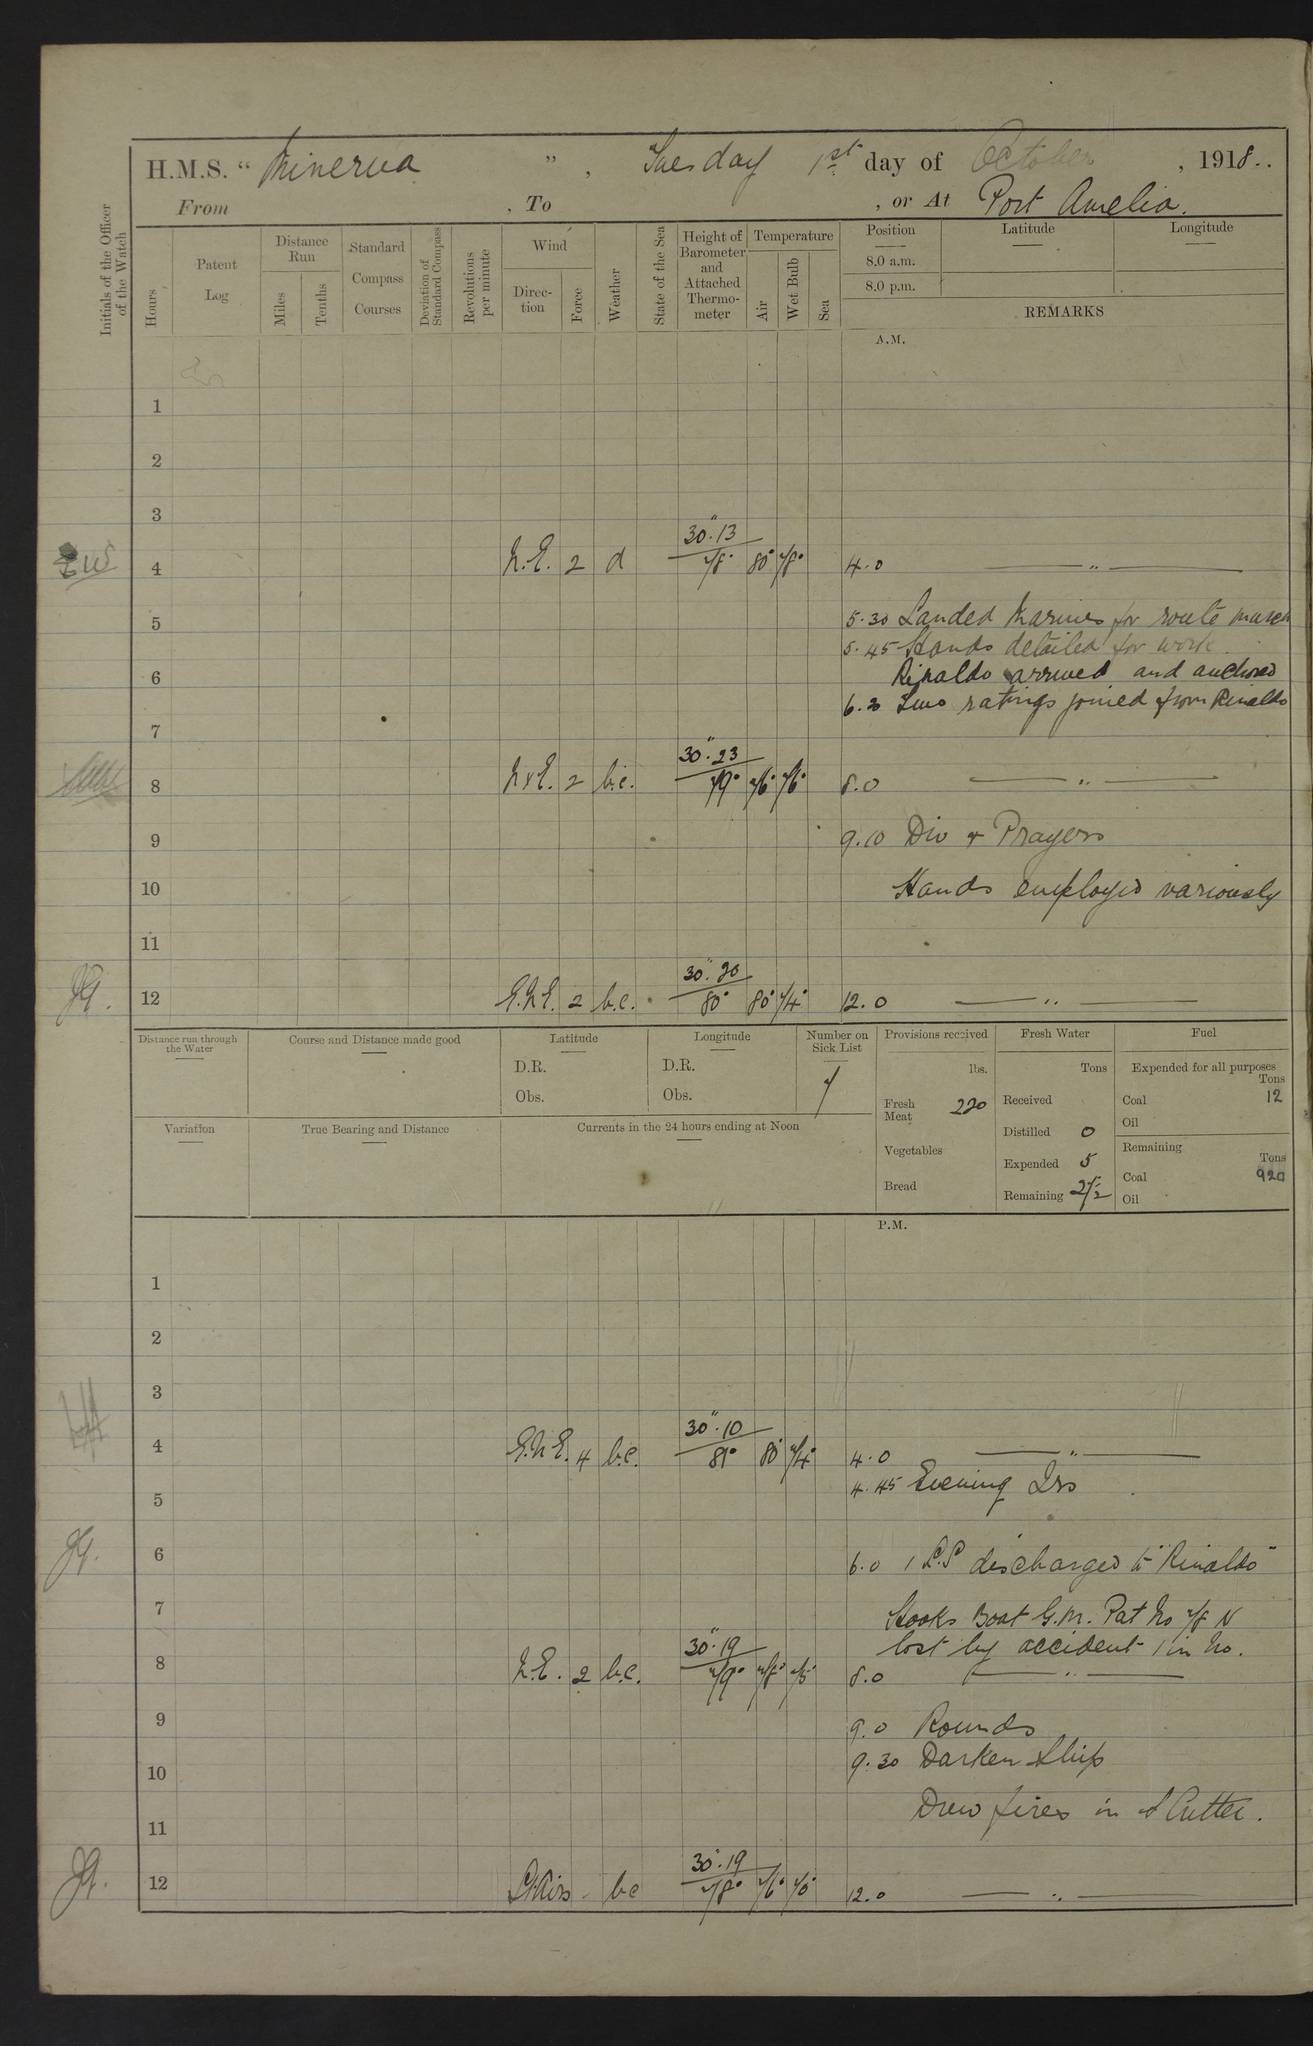 H.M.S. “ Minerva ” , Tuesday 1st day of October , 1918..
From , To , or At Port Amelia.
Initials of the Officer of the Watch
Hours
Patent Log
Distance Run
Miles
Tenths
Standard Compass Courses
Deviation of Standard Compass
Revolutions per minute
Wind
Direc-tion
Force
Weather
State of the Sea
Height of Barometer and Attached Thermo-meter
Temperature
Air
Wet Bulb
Sea
Position
8.0 a.m.
8.0 p.m.
Latitude
Longitude
REMARKS
A.M.
1
2
3
4 N.E. 2 d 30".13 78° 80° 78° 4.0 — " —
5 5.30 Landed Marines for route march
5.45 Hands detailed for work.
6 Rinaldo arrived and anchored
6.30 Two ratings joined from Rinaldo
7
8 NxE. 2 b.c. 30".23 79° 76° 76° 8.0 — " —
9 9.10 Div + Prayers
10 Hands employed variously
11
JG. 12 E.N.E. 2 b.c. 30".20 80° 80° 74° 12.0 — " —
Distance run through the Water
Course and Distance made good
Latitude
D.R.
Obs.
Longitude
D.R.
Obs.
Number on Sick List
7
Provisions received
lbs.
Fresh Meat 220
Vegetables
Bread
Fresh Water
Tons
Received
Distilled 0
Expended 5
Remaining 272
Fuel
Expended for all purposes
Tons
Coal 12
Oil
Remaining
Tons
Coal 920
Oil
Variation
True Bearing and Distance
Currents in the 24 hours ending at Noon
P.M.
1
2
3
4 E.N.E. 4 b.c. 30".10 81° 80° 74° 4.0 — " —
4.45 Evening Qrs
5
JG. 6 6.0 1 P.O. discharged to "Rinaldo"
7 Hooks Boat G.M. Pat No 78 N
lost by accident 1 in No.
8 N.E. 2 b.c. 30".19 79° 78° 75° 8.0 — " —
9 9.0 Rounds
9.30 Darken Ship
10
Drew fires in S Cutter.
11
JG. 12 Lt Airs - bc 30".19 78° 76° 75° 12.0 — " —